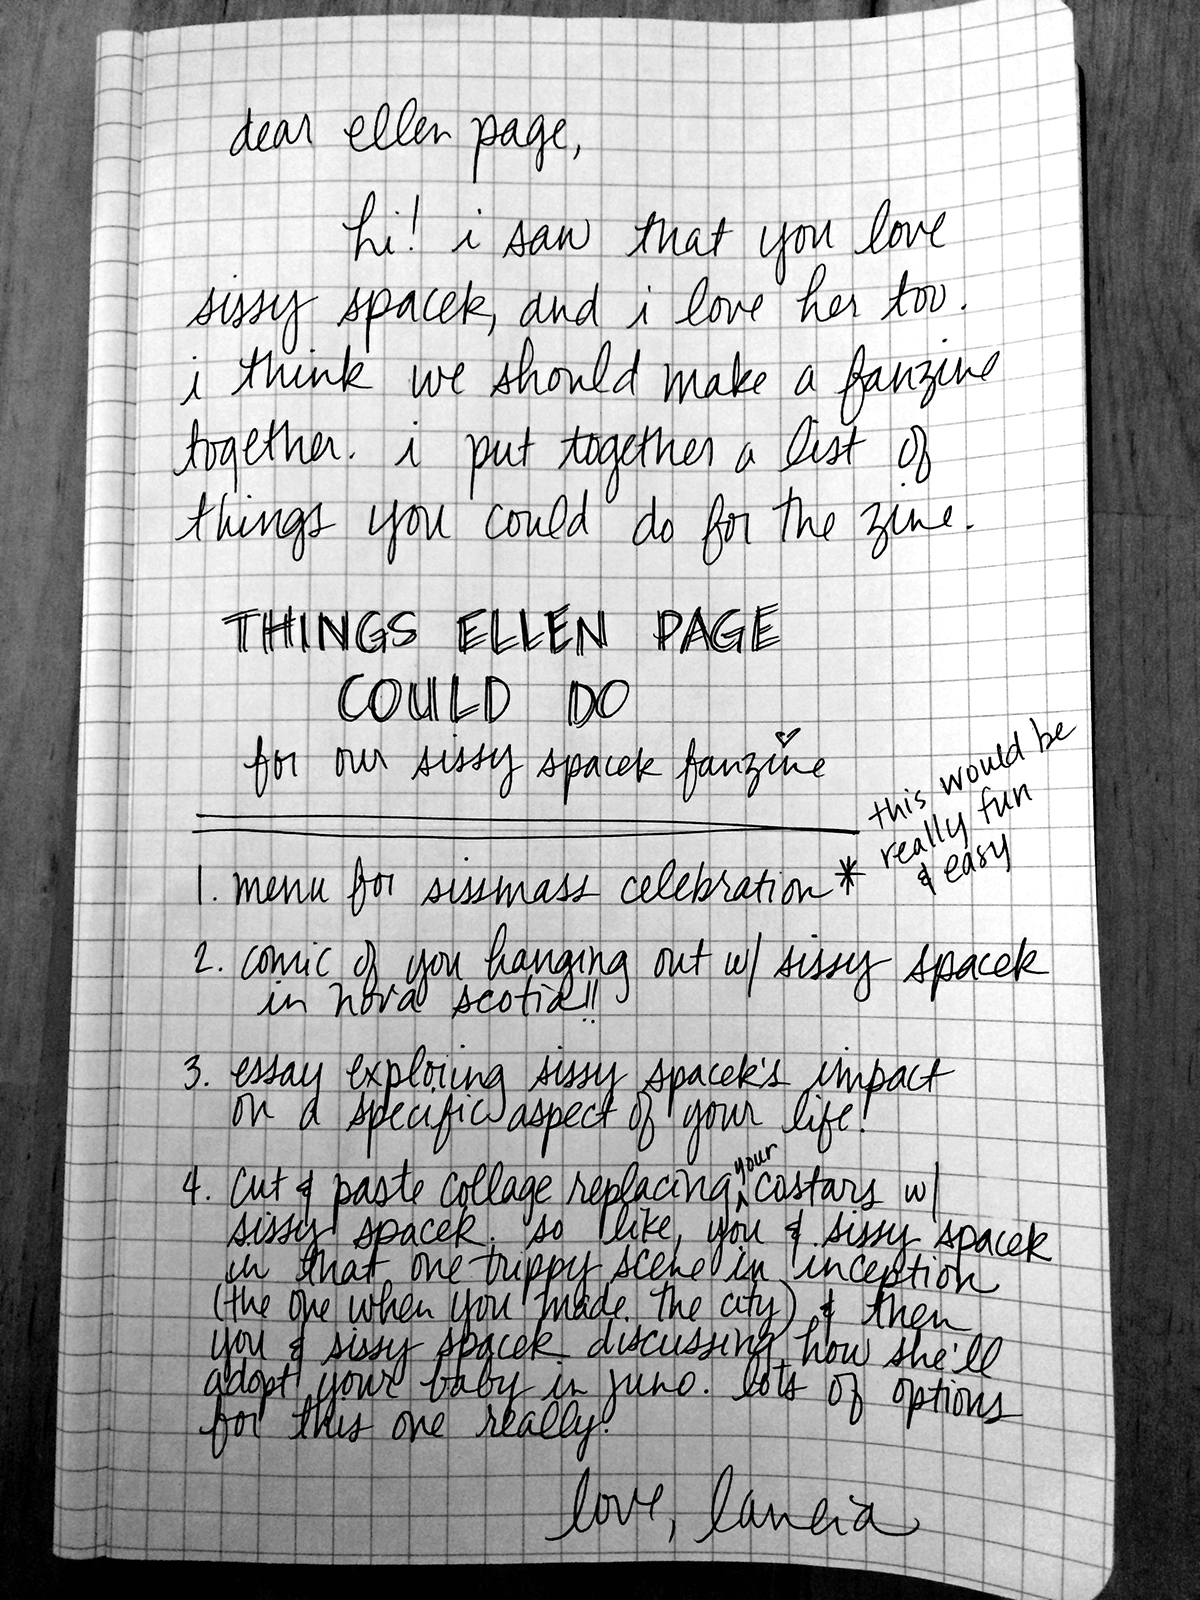 dear ellen page,
hi! i saw that you love
sissy spacek, and i love her too.
i think we should make a fanzine
together. i put together a list of
things you could do for the zine.
THINGS ELLEN PAGE
COULD DO
for our sissy spacek fanzine
this would be
really fun
& easy
1. menu for sissmass celebration *
2. comic of you hanging out w/ sissy spacek
in nova scotia!!
3. essay exploring sissy spacek's impact
on a specific aspect of your life!
4. cut & paste collage replacing your costars w/
sissy spacek. so like, you & sissy spacek
in that one trippy scene in inception
(the one when you made the city) & then
you & sissy spacek discussing how she'll
adopt your baby in juno. lots of options
for this one really!
love, laneia